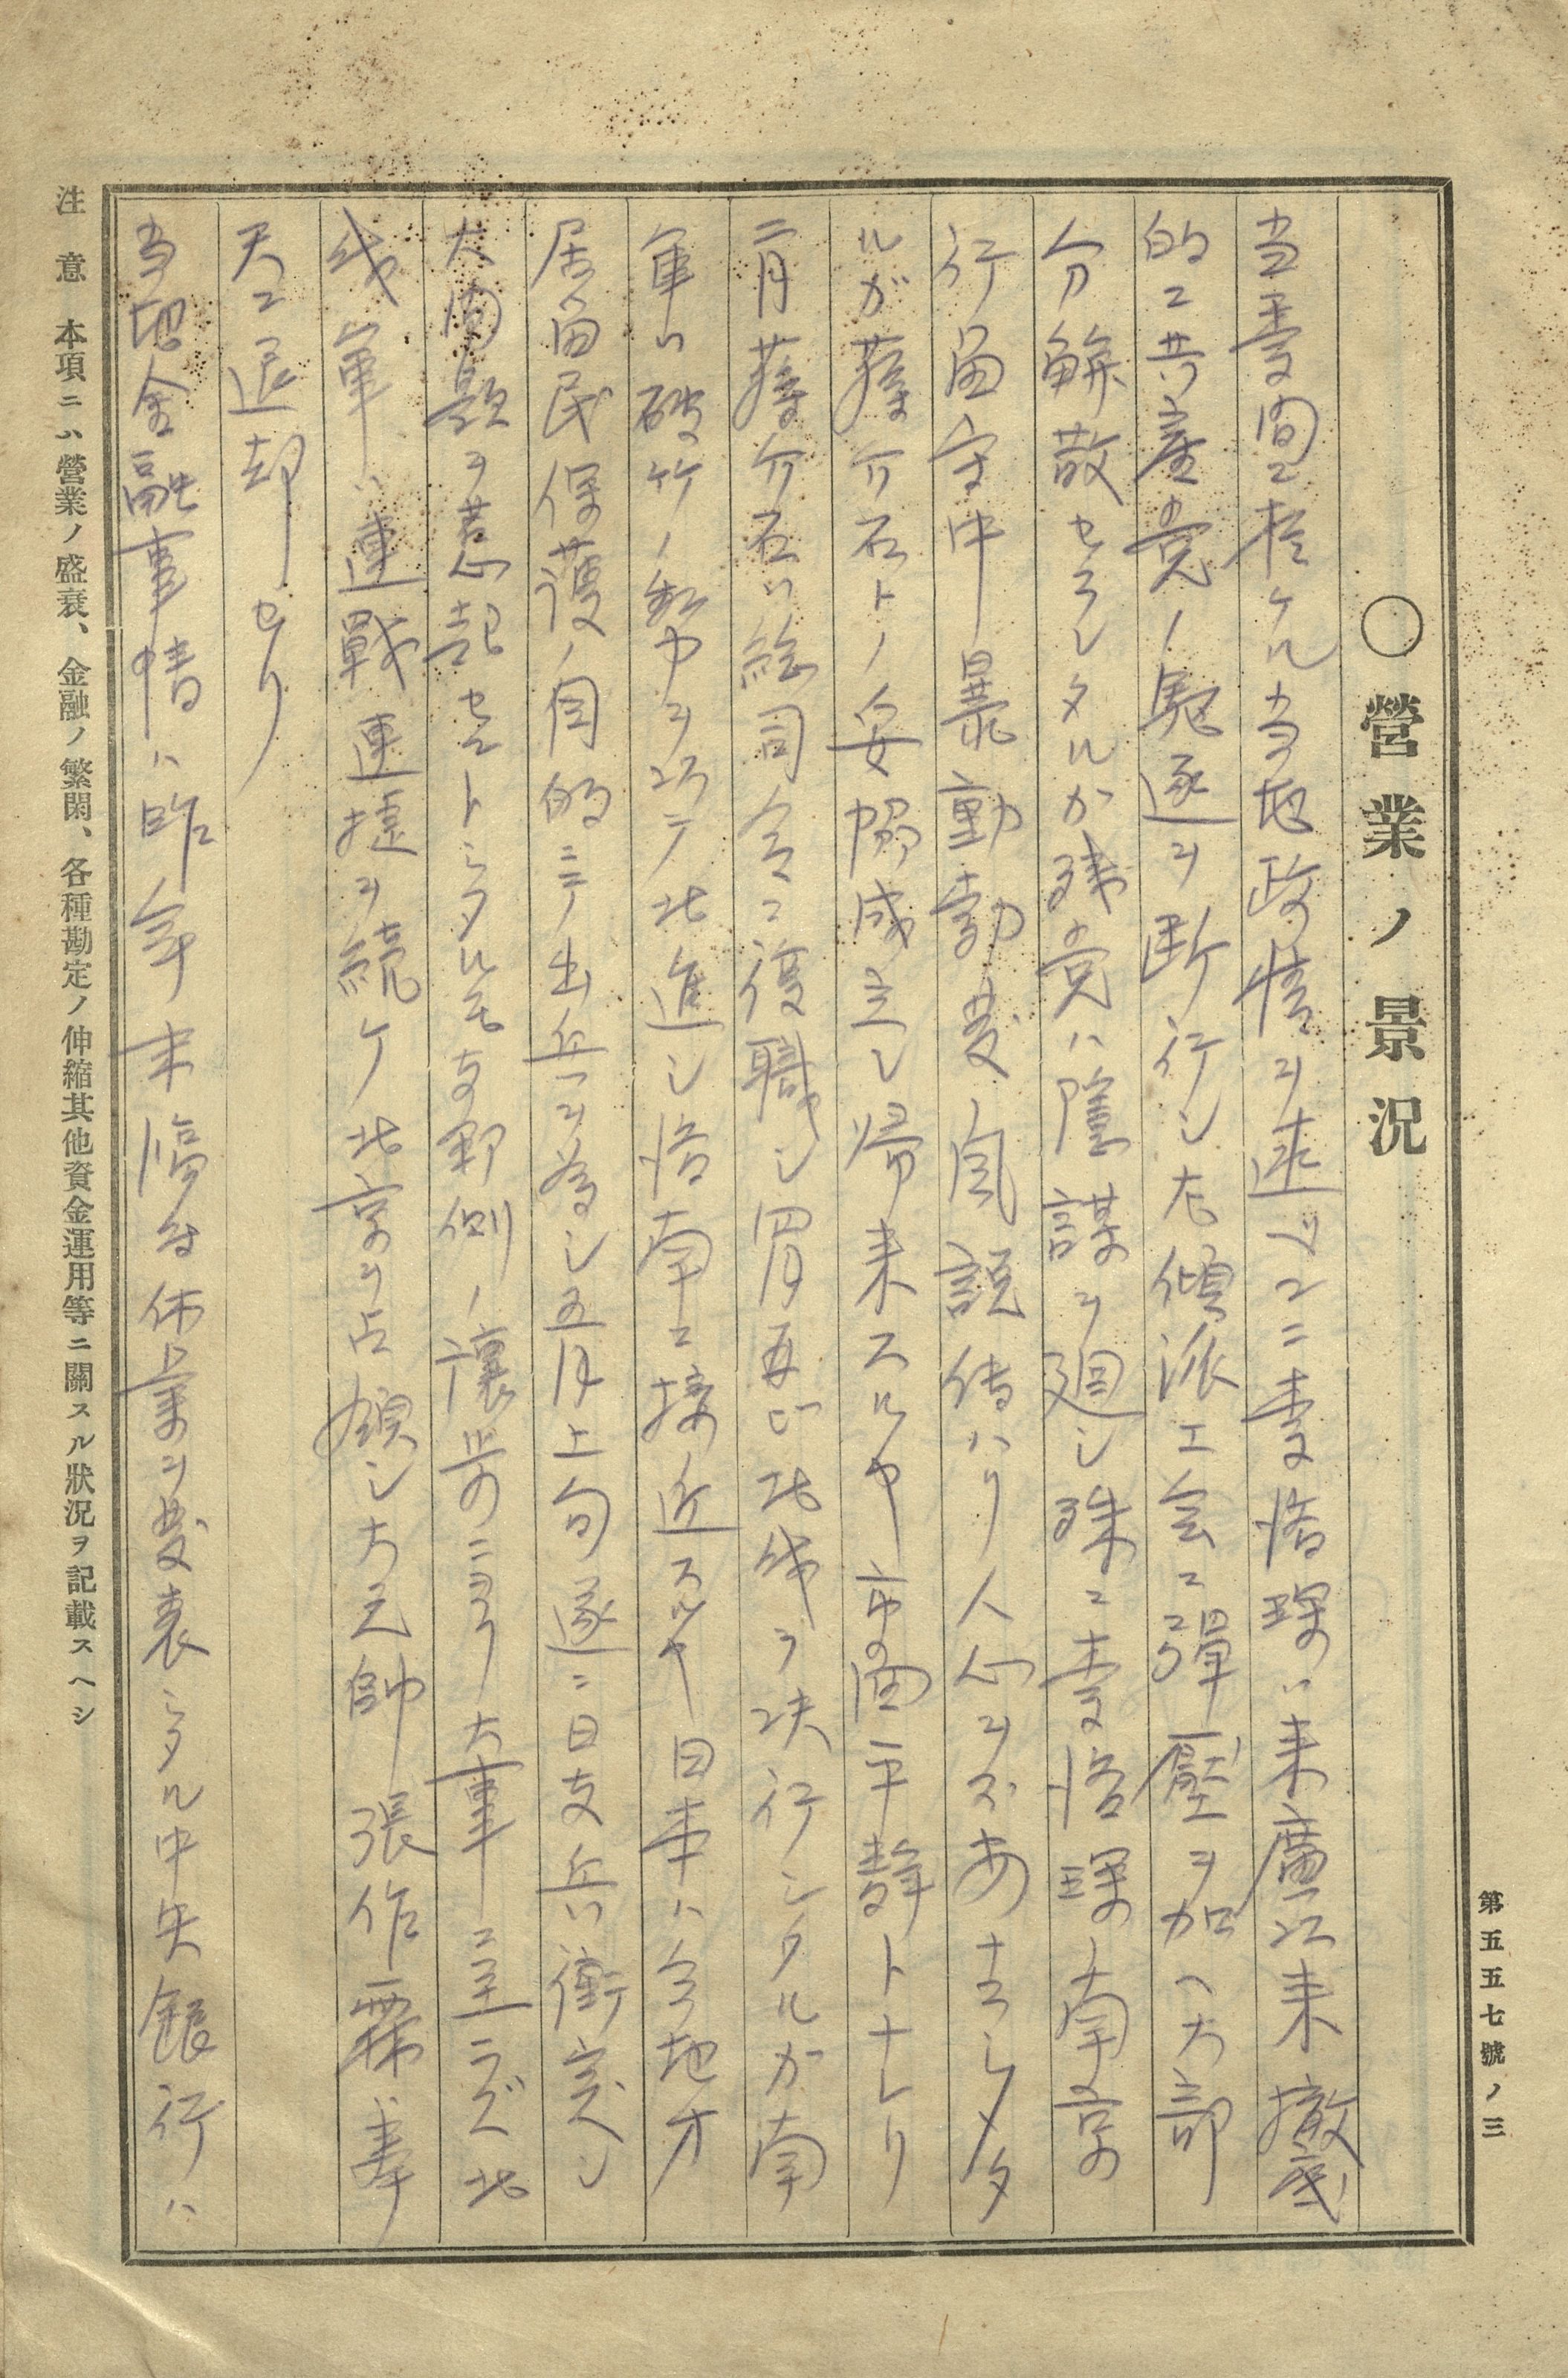 第五五七號ノ三
〇營業ノ景況
当季間ニ於ケル当地政情ヲ述ベンニ李済琛ハ来廣以来撤底
的ニ共産党ノ駆逐ヲ断行シ左傾派工会ニ彈壓ヲ加ヘ大部
分解散セラレタルカ残党ハ陰謀ヲ廻シ殊ニ李済琛ノ南京
行留守中暴動勃発ノ風説傳ハリ人心ヲ不安ナラシメタ
ルガ蒋介石トノ妥協成立シ帰来スルヤ市面平静トナレリ
二月蒋介石ハ総司令ニ復職シ四月再ビ北伐ヲ決行シタルカ南
軍ハ破竹ノ勢力ヲ以テ北進シ済南ニ接近スルヤ日本ハ今地方
居留民保護ノ目的ニテ出兵ヲ為シ五月上旬遂ニ日支兵ハ衝突シ
大問題ヲ惹起セントシタルモ支那側ノ讓歩ニヨリ大事ニ至ラズ北
伐軍ハ連戰連捷ヲ続ケ北京ヲ占領シ大元帥張作霖ハ奉
天ニ退却セリ
当地金融事情ハ昨年末臨時休業ヲ發表シタル中央銀行ハ
注意 本項ニハ營業ノ盛衰、金融ノ繁閑、各種勘定ノ伸縮其他資金運用等ニ關スル狀況ヲ記載スヘシ